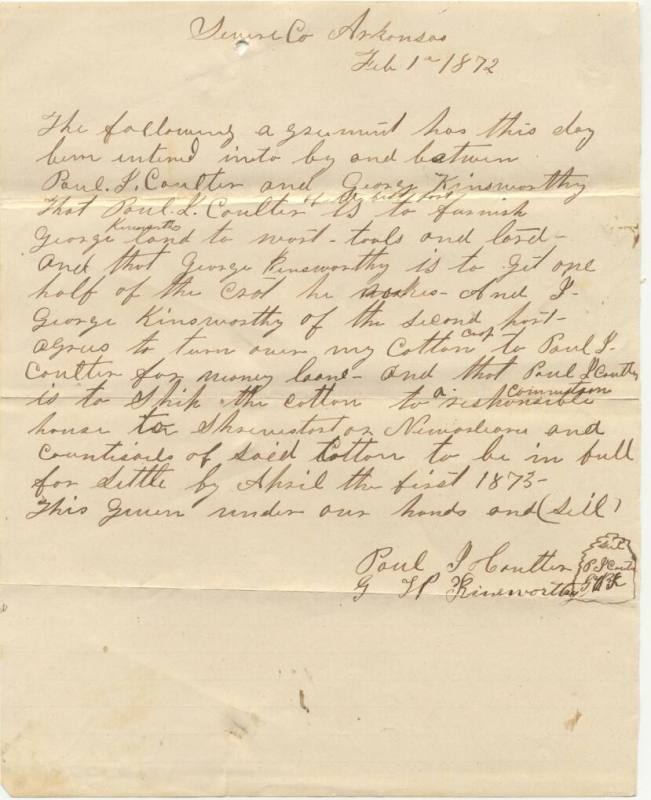 Sevier Co Arkansas
Feb 1st 1872
The following agreement has this day
been entered into by and between
Paul. J. Coulter and George Kinsworthy
that Paul. J. Coulter of the first part is to furnish
George Kinsworthy land to work - tools and land -
and that George Kinsworthy is to get one
half of the crop he makes - And I -
George Kinsworthy of the second part -
agrees to turn over my Cotton crop to Paul J -
Coulter for money loane - and that Paul J Coulter
is to Ship the cotton to a responsible commission
house to Shreveport or Neworleans and
of said Cotton to be in full
for settle by April the first 1873 -
This Given under our hands and (Sell)
Paul J Coulter
G W Kinsworthy
Sel
P. J. Coulte
GWK